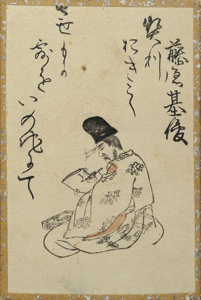 藤原基俊
契利
おきし
させもか
露を
いのちにて